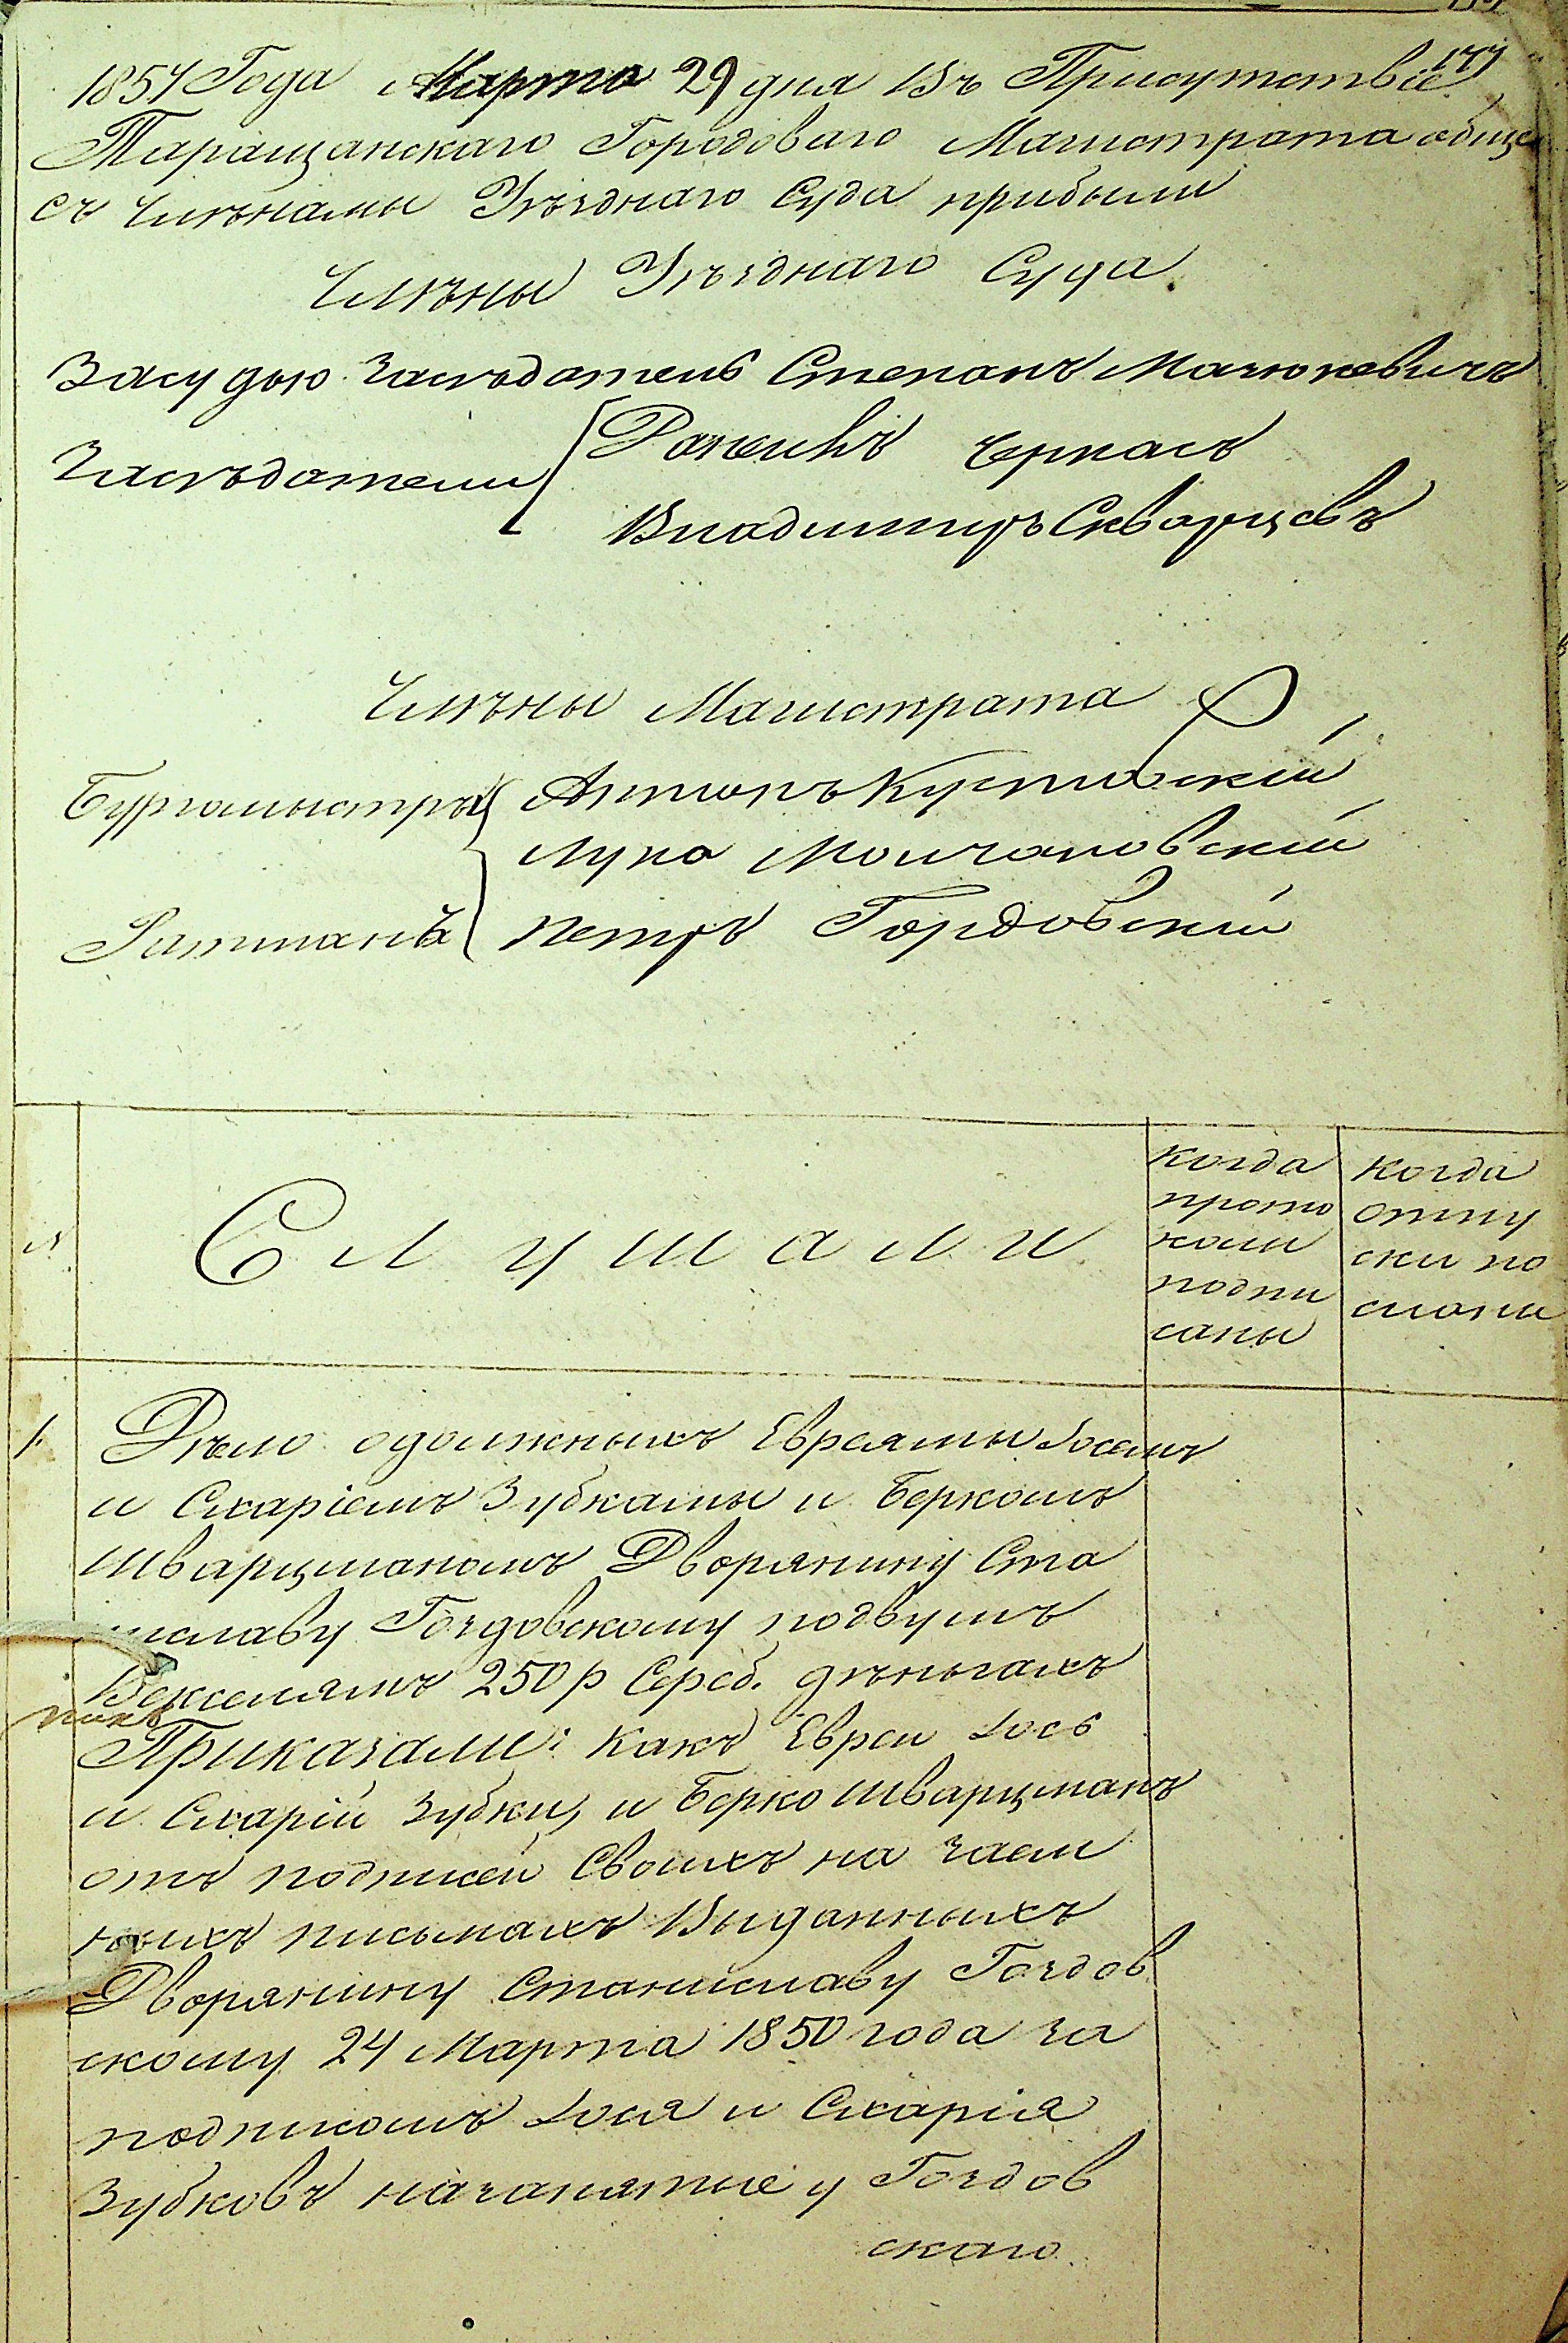 177
1854 Года Марта 29 дня Въ Присутствіе
Таращанскаго Городоваго Магистрата обще
съ Члѣнамы Уѣзднаго Суда прибыли
Члѣны Уѣзднаго Суда.
За судью Засѣдатель Степанъ
Засѣдатели Черкасъ
Владимиръ Скварцевъ
Члѣны Магистрата
Бургомыстры Антонъ
Лука Молчановскій
Ратманъ Петръ Гордовскій
№ Слушали
когда прото колы подпи саны
когда отпу ски по сланы
1. Дѣло о должныхъ Евреямы Лосемъ
и Схаріемъ Зубкамы и Беркомъ
Шварцманомъ Дворянину Ста
ниславу Гоздовскому по двумъ
Векселямъ 250 р Сереб. дѣньгахъ
Приказали: какъ Евреи Лось
и Схарій Зубки, и Берко Шварцманъ
отъ подписей Своихъ на заем
ныхъ письмахъ Выданныхъ
Дворянину Станиславу Гоздов
скому 24 Марта 1850 года за
подписомъ Лося и Схарія
Зубковъ на занятые у Гоздов
скаго